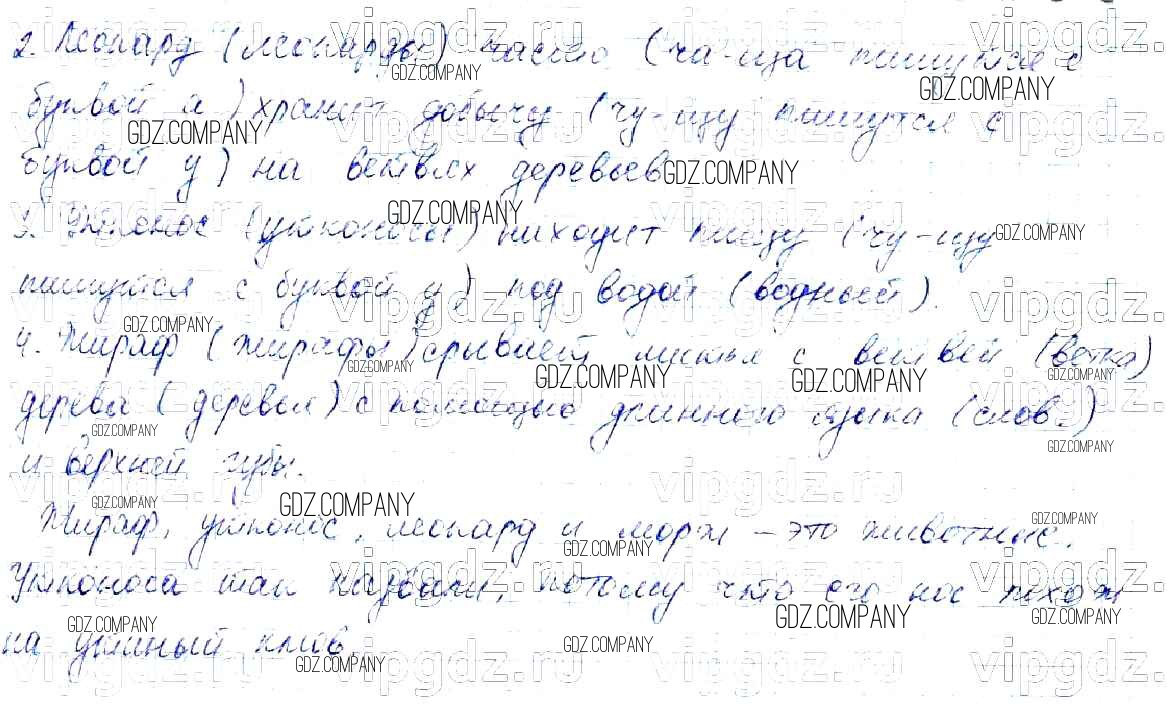 2. Леопард (леопарды) часто (ча-ща пишутся с
буквой а) хранит добычу (чу-щу пишутся с
буквой у) на ветвях деревьев
3. Утконос (утконосы) находит пищу (чу-щу
пишутся с буквой у) под водой (водный).
4. Жираф (жирафы) срывает листья с ветвей (ветка)
дерева (деревья) с помощью длинного языка (слов.)
и верхней губы.
Жираф, утконос, леопард и морж – это животные.
Утконоса так назвали, потому что его нос похож
на утиный клюв.
vipgdz.ru
GDZ.COMPANY